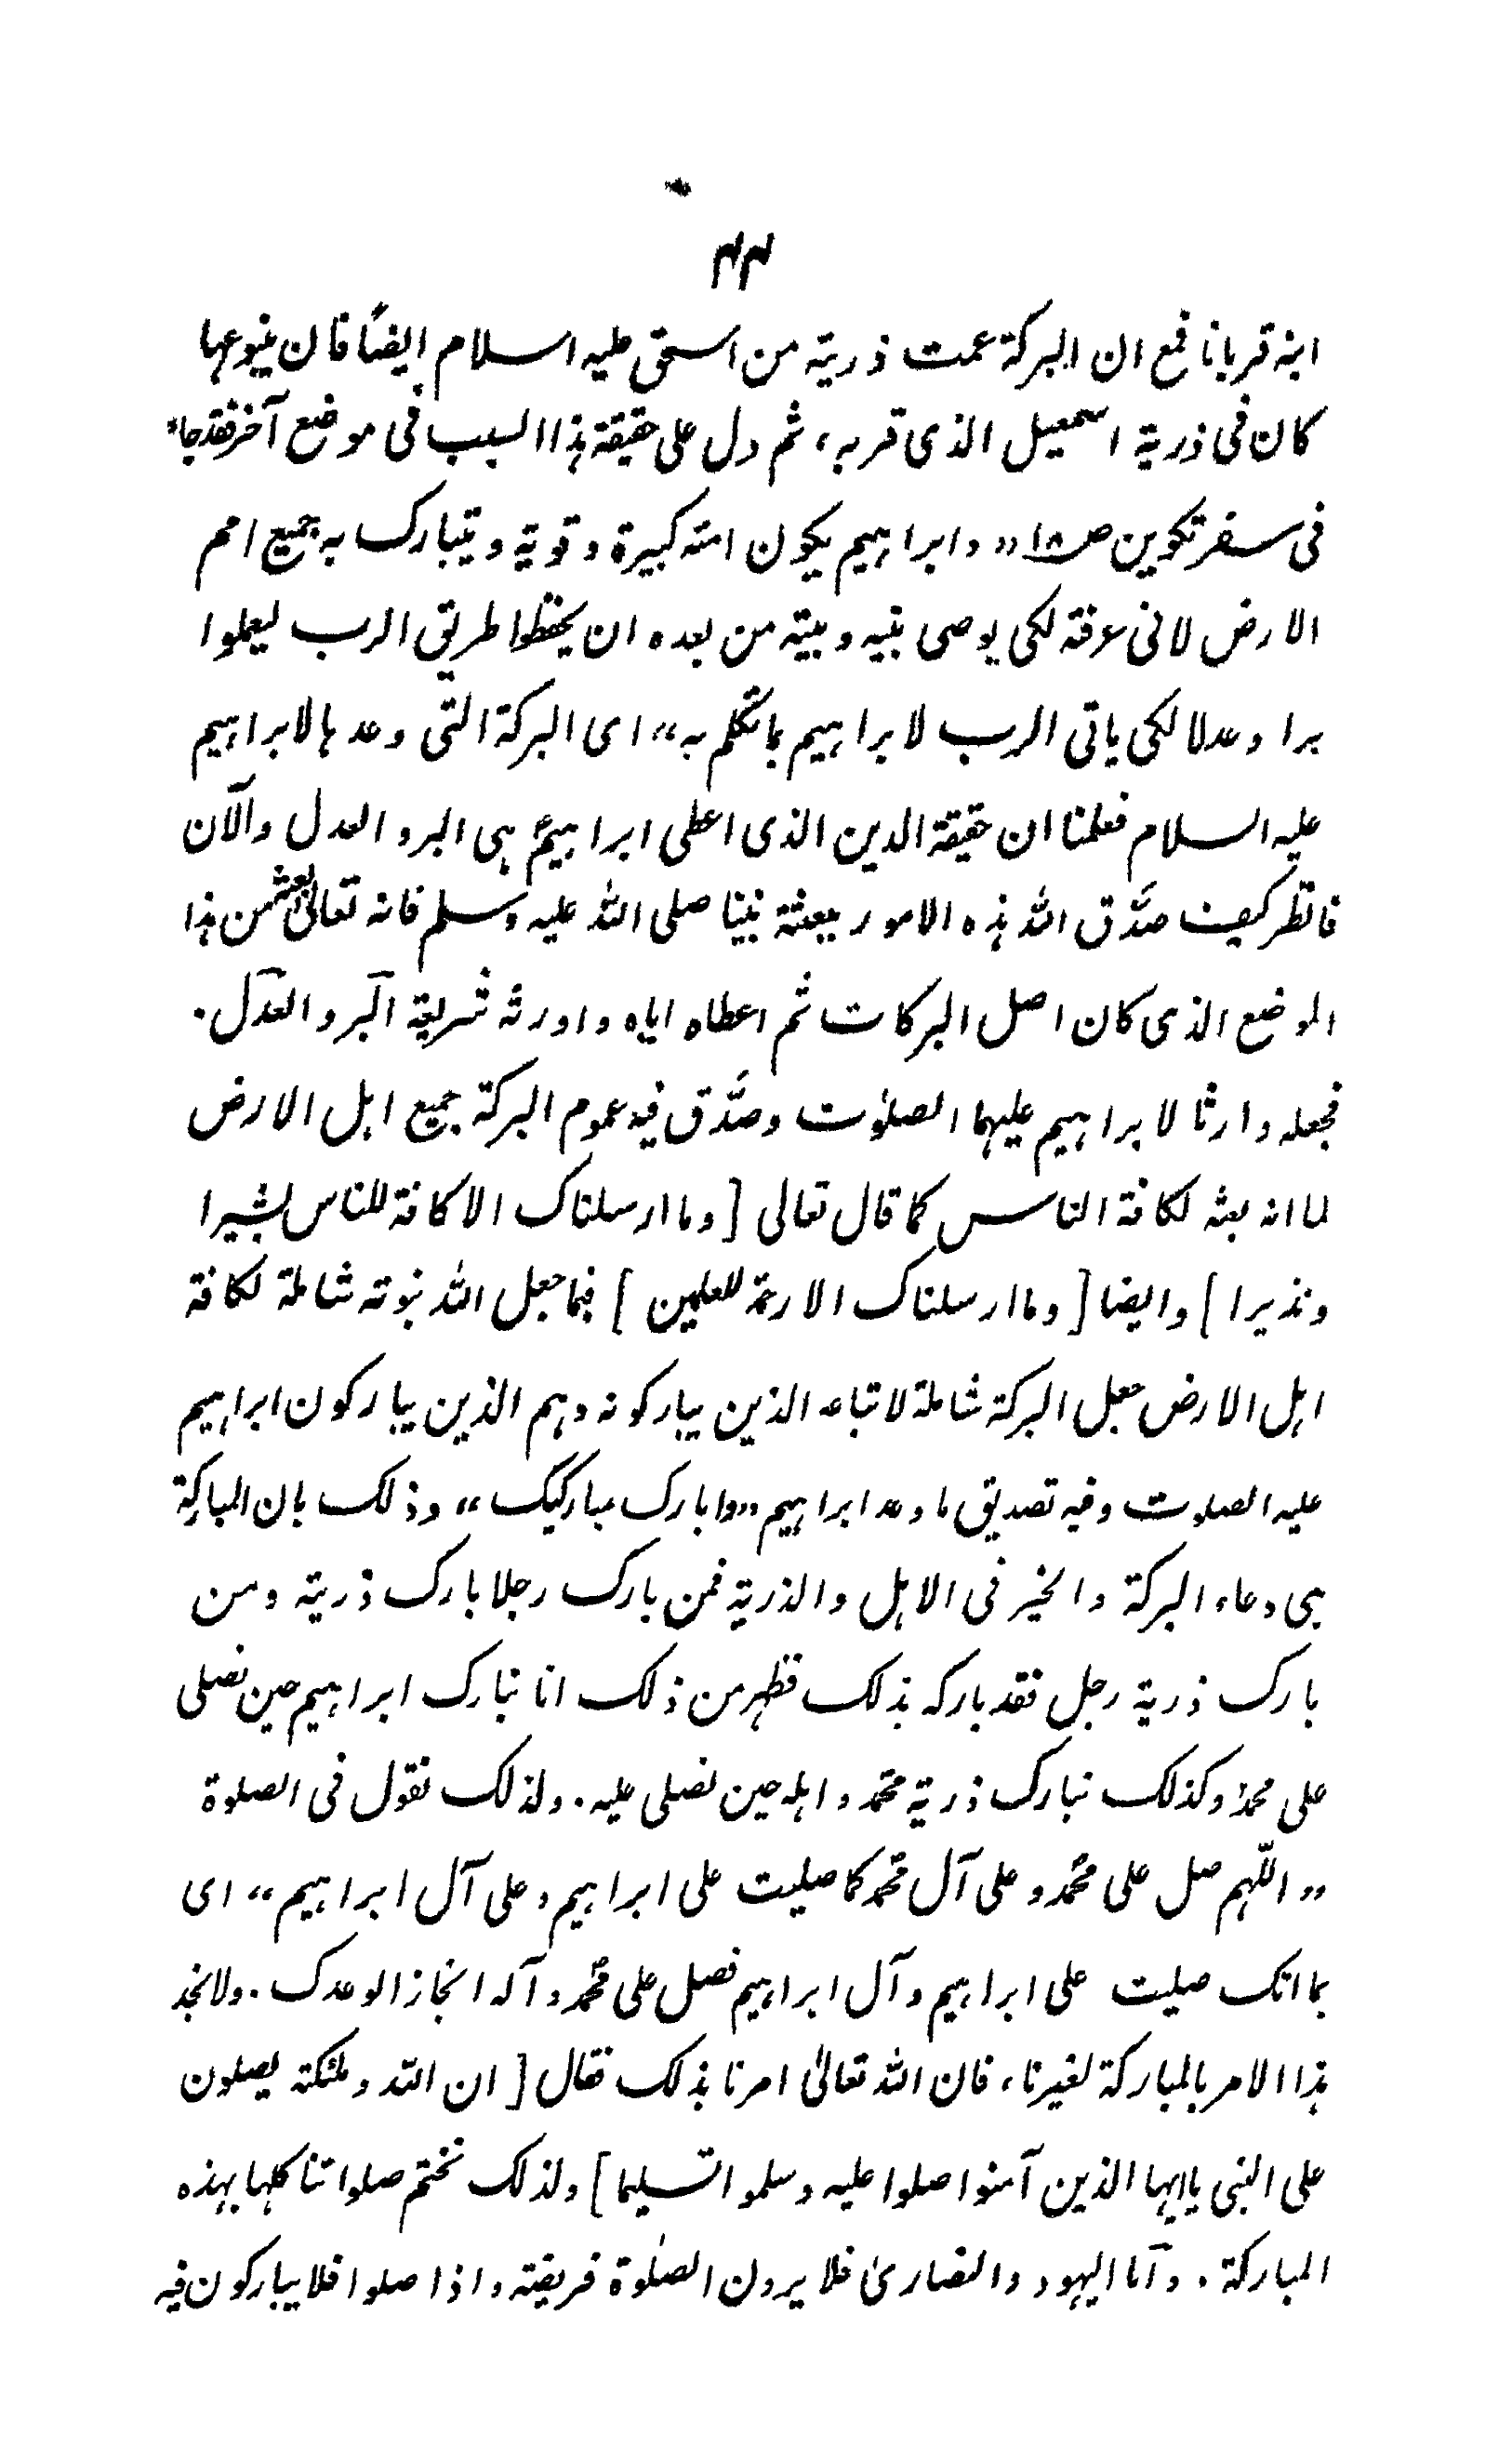 ۴۴
ابنه قربانا فمع ان البركة عمت ذريته من اسحق عليه السلام ايضًا فان ينبوعها
كان فى ذرية اسمعيل الذى قربه، ثم دل على حقيقة هذا السبب فى موضع آخر فقد جاء
فى سفر تكوين ص ١٨ "وابراهيم يكون امته كبيرة وقوية ويتبارك به جميع امم
الارض لانى عرفته لكى يوصى بنيه وبيته من بعده ان يحفظوا طريق الرب ليعملوا
برا وعدلا لكى ياتى الرب لابراهيم بما تكلم به" اى البركة التى وعدها لابراهيم
عليه السلام فعلمنا ان حقيقة الدين الذى اعطى ابراهيمؑ هى البر والعدل والآن
فانظر كيف صدَّق الله هذه الامور ببعثة نبينا صلى الله عليه وسلم فانه تعالىٰ بعثه من هذا
الموضع الذى كان اصل البركات ثم اعطاه اياه واورثه شريعة البر والعدل.
فجعله وارثا لابراهيم عليهما الصلوٰت وصدَّق فيه عموم البركة جميع اهل الارض
لما انه بعثه لكافة الناس كما قال تعالى [وما ارسلناك الا كافة للناس بشيرا
ونذيرا] وايضا [وما ارسلناك الا رحمة للعلمين] فبما جعل الله نبوته شاملة لكافة
اهل الارض جعل البركة شاملة لاتباعه الذين يباركونه وهم الذين يباركون ابراهيم
عليه الصلوت وفيه تصديق ما وعد ابراهيم "وابارك مباركيك" وذلك بان المباركة
هى دعاء البركة والخير فى الاهل والذرية فمن بارك رجلا بارك ذريته ومن
بارك ذرية رجل فقد باركه بذلك فظهر من ذلك انا نبارك ابراهيم حين نصلى
على محمدؐ وكذلك نبارك ذرية محمد واهله حين نصلى عليه. ولذلك نقول فى الصلوة
"اللّهم صل على محمد وعلى آل محمد كما صليت على ابراهيم وعلى آل ابراهيم" اى
بما انك صليت على ابراهيم وآل ابراهيم فصل على محمد وآله انجازا لوعدك. ولا نجد
هذا الامر بالمباركة لغيرنا، فان الله تعالىٰ امرنا بذلك فقال [ان الله وملئكته يصلون
على النبى ياايها الذين آمنوا صلوا عليه وسلموا تسليما] ولذلك نختم صلواتنا كلها بهذه
المباركة. وآما اليهود والنصارىٰ فلا يرون الصلٰوة فريضة واذا صلوا فلا يباركون فيه